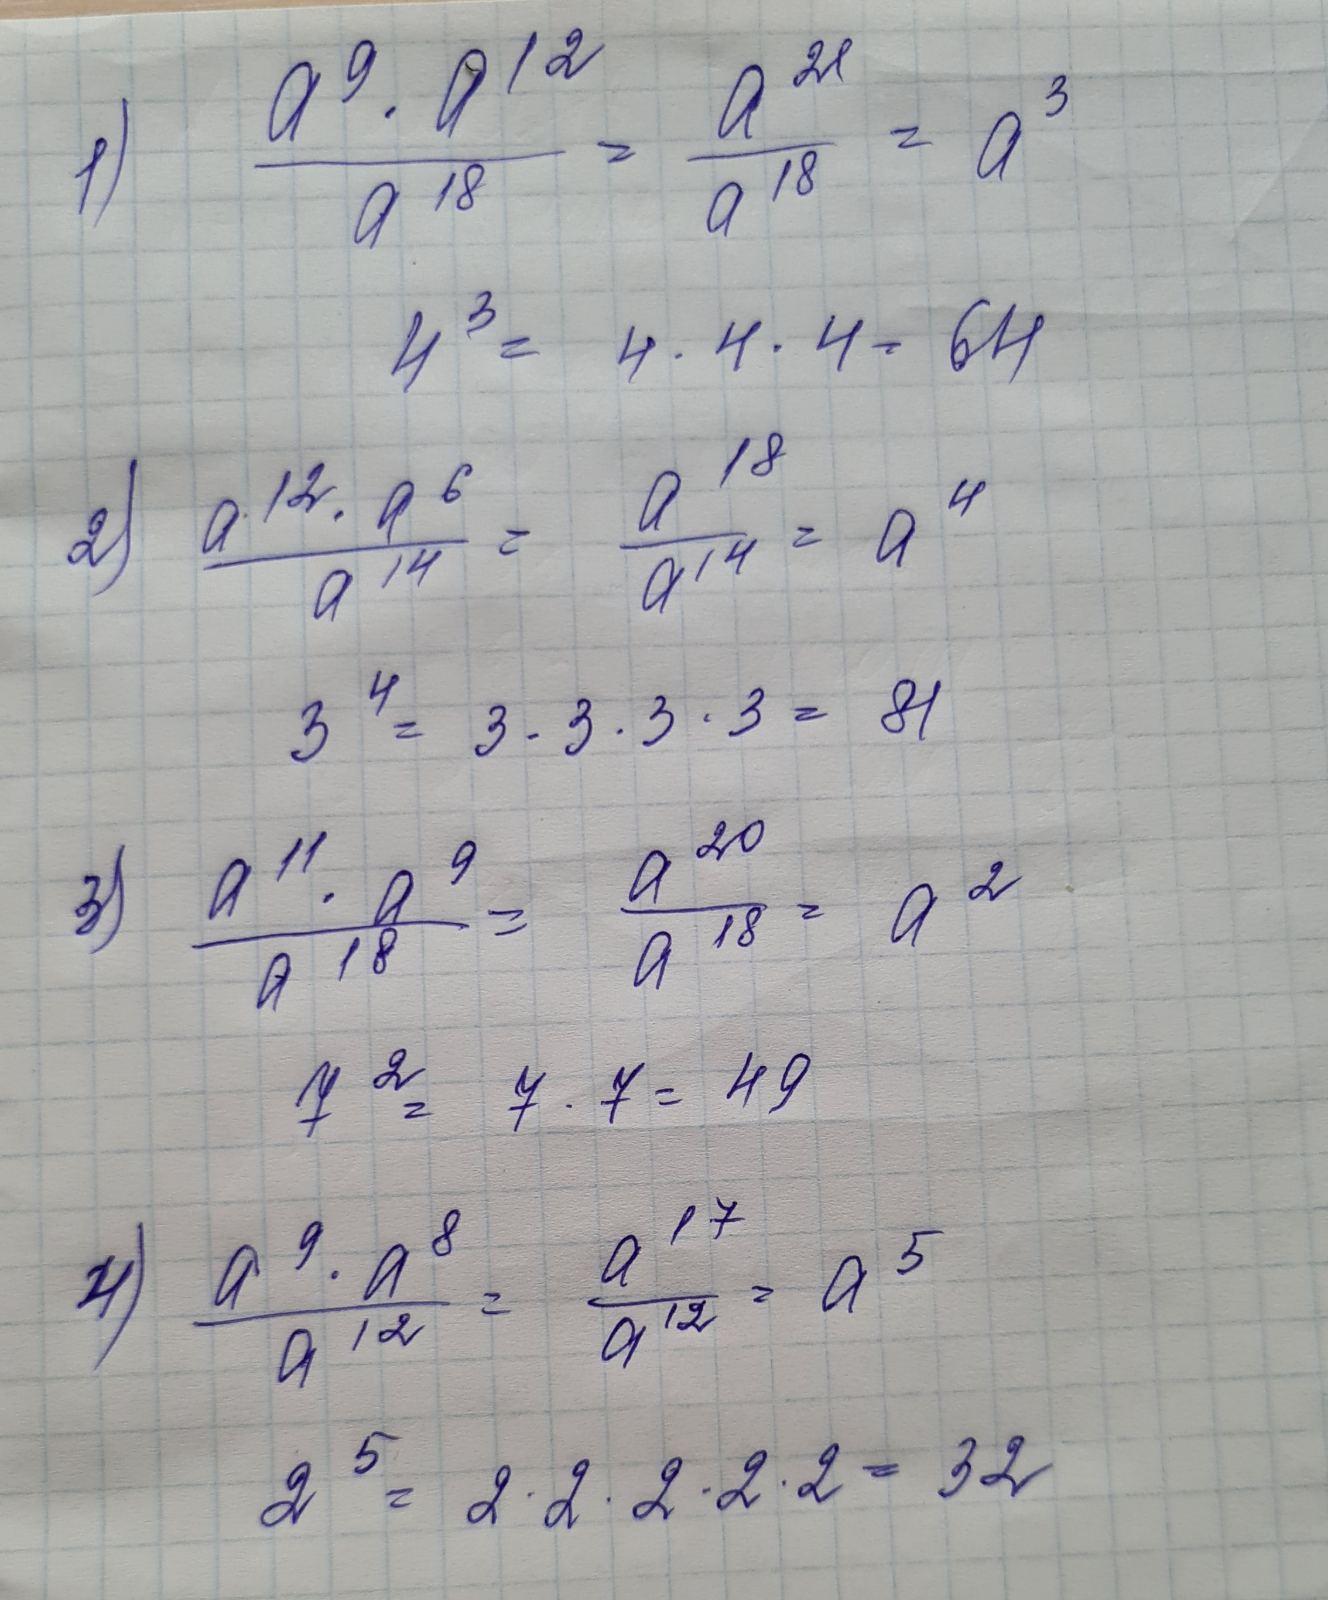 1) (a^9 · a^12)/a^18 = a^21/a^18 = a^3
4^3 = 4 · 4 · 4 = 64
2) (a^12 · a^6)/a^14 = a^18/a^14 = a^4
3^4 = 3 · 3 · 3 · 3 = 81
3) (a^11 · a^9)/a^18 = a^20/a^18 = a^2
7^2 = 7 · 7 = 49
4) (a^9 · a^8)/a^12 = a^17/a^12 = a^5
2^5 = 2 · 2 · 2 · 2 · 2 = 32